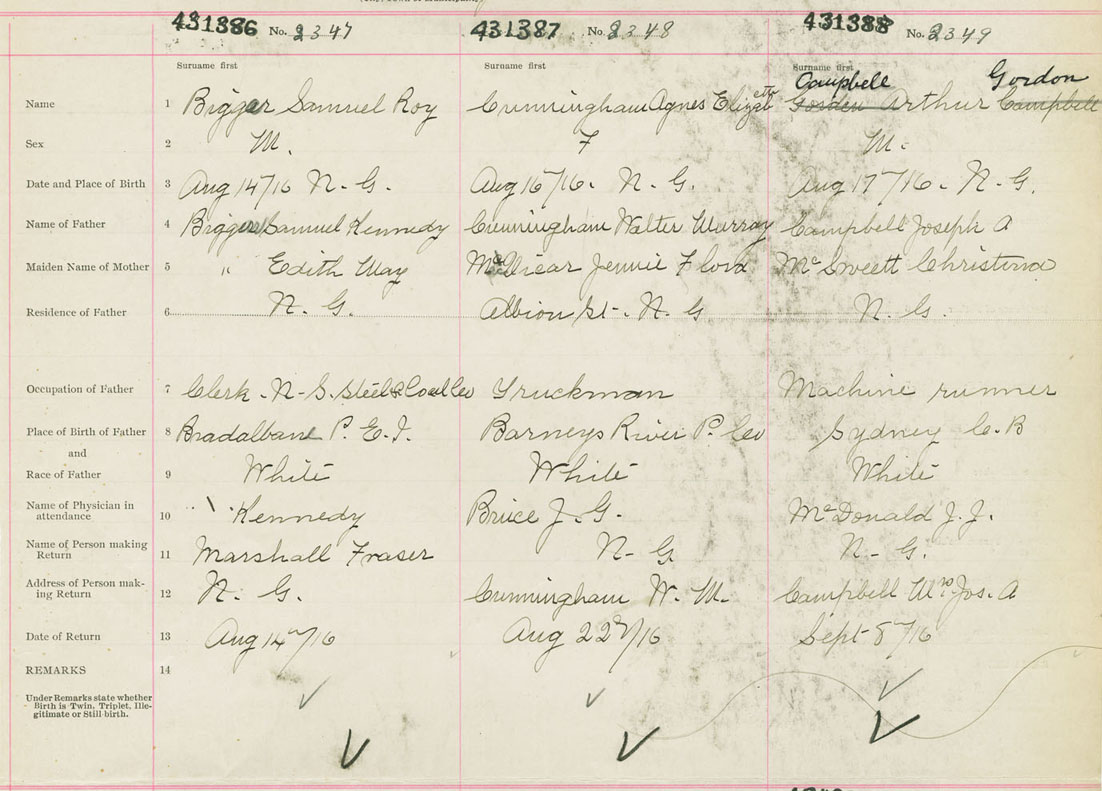 431386 No. 2347 431387 No. 2348 431388 No. 2349
Surname first Surname first Surname first
Campbell Gordon
Name 1 Bigger Samuel Roy Cunningham Agnes Elizabeth Gordon Arthur Campbell
Sex 2 M. F M.
Date and Place of Birth 3 Aug 14/16 N. G. Aug 16/16. N. G. Aug 17/16. N. G.
Name of Father 4 Bigger Samuel Kennedy Cunningham Walter Murray Campbell Joseph A
Maiden Name of Mother 5 " Edith May McVicar Jennie Flora Christina
Residence of Father 6 N. G. Albion St. N. G N. G.
Occupation of Father 7 Clerk. N. S. Steel & Coal Co Truckman Machine runner
Place of Birth of Father 8 Bradalbane P. E. I. Barneys River P. Co Sydney C. B
and
Race of Father 9 White White White
Name of Physician in
attendance 10 Kennedy Bruce J. G. McDonald J. J.
Name of Person making
Return 11 Marshall Fraser N- G N- G.
Address of Person mak-
ing Return 12 N. G. Cunningham W. M. Campbell Mrs Jos. A
Date of Return 13 Aug 14/16 Aug 22/16 Sept 8/16
REMARKS 14
Under Remarks state whether
Birth is Twin, Triplet, Ille-
gitimate or Still-birth.